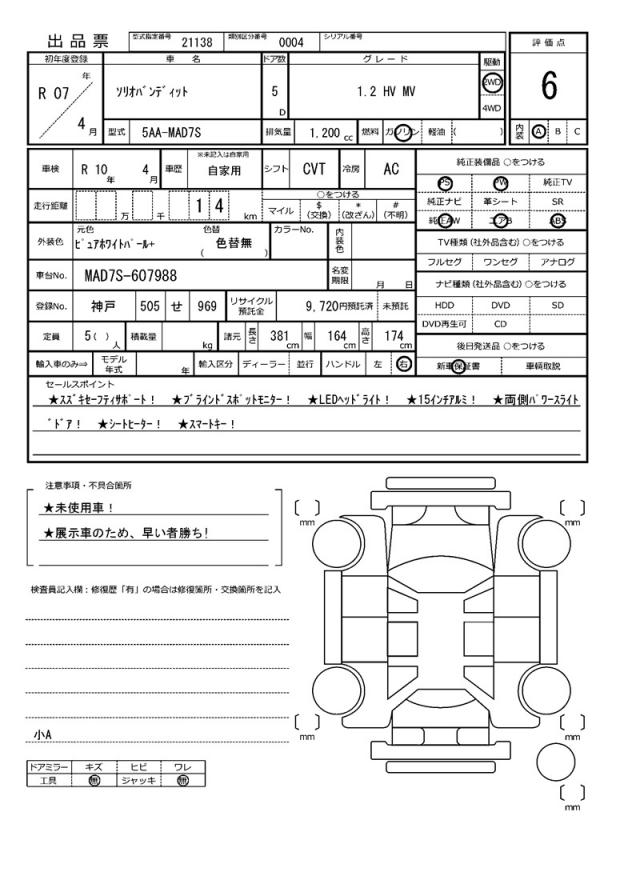 出品票
型式指定番号 21138 類別区分番号 0004 シリアル番号
評価点
6
内装 A B C
初年度登録 車名 ドア数 グレード 駆動
R 07 年 4 月 ソリオバンディット 5 D 1.2 HV MV 2WD 4WD
型式 5AA-MAD7S 排気量 1.200 cc 燃料 ガソリン 軽油 ( )
車検 R 10 年 4 月 車歴 ※未記入は自家用 自家用 シフト CVT 冷房 AC
走行距離 万 千 1 4 km
○をつける
マイル $(交換) *(改ざん) #(不明)
外装色 元色 ピュアホワイトパール+ 色替 ( 色替無 ) カラーNo. 内装色
車台No. MAD7S-607988 名変期限 月 日
登録No. 神戸 505 せ 969 リサイクル預託金 9,720円預託済 未預託
定員 5( )人 積載量 kg 諸元 長さ 381cm 幅 164cm 高さ 174cm
輸入車のみ⇒ モデル年式 年 輸入区分 ディーラー 並行 ハンドル 左 右
純正装備品 ○をつける
PS PW 純正TV
純正ナビ 革シート SR
純正AW エアB ABS
TV種類 (社外品含む) ○をつける
フルセグ ワンセグ アナログ
ナビ種類 (社外品含む) ○をつける
HDD DVD SD
DVD再生可 CD
後日発送品 ○をつける
新車保証書 車輌取説
セールスポイント
★スズキセーフティサポート! ★ブラインドスポットモニター! ★LEDヘッドライト! ★15インチアルミ! ★両側パワースライト
゛ドア! ★シートヒーター! ★スマートキー!
注意事項・不具合箇所
★未使用車!
★展示車のため、早い者勝ち!
検査員記入欄:修復歴「有」の場合は修復箇所・交換箇所を記入
小A
ドアミラー キズ ヒビ ワレ
工具 無 ジャッキ 無
mm
mm
mm
mm
mm